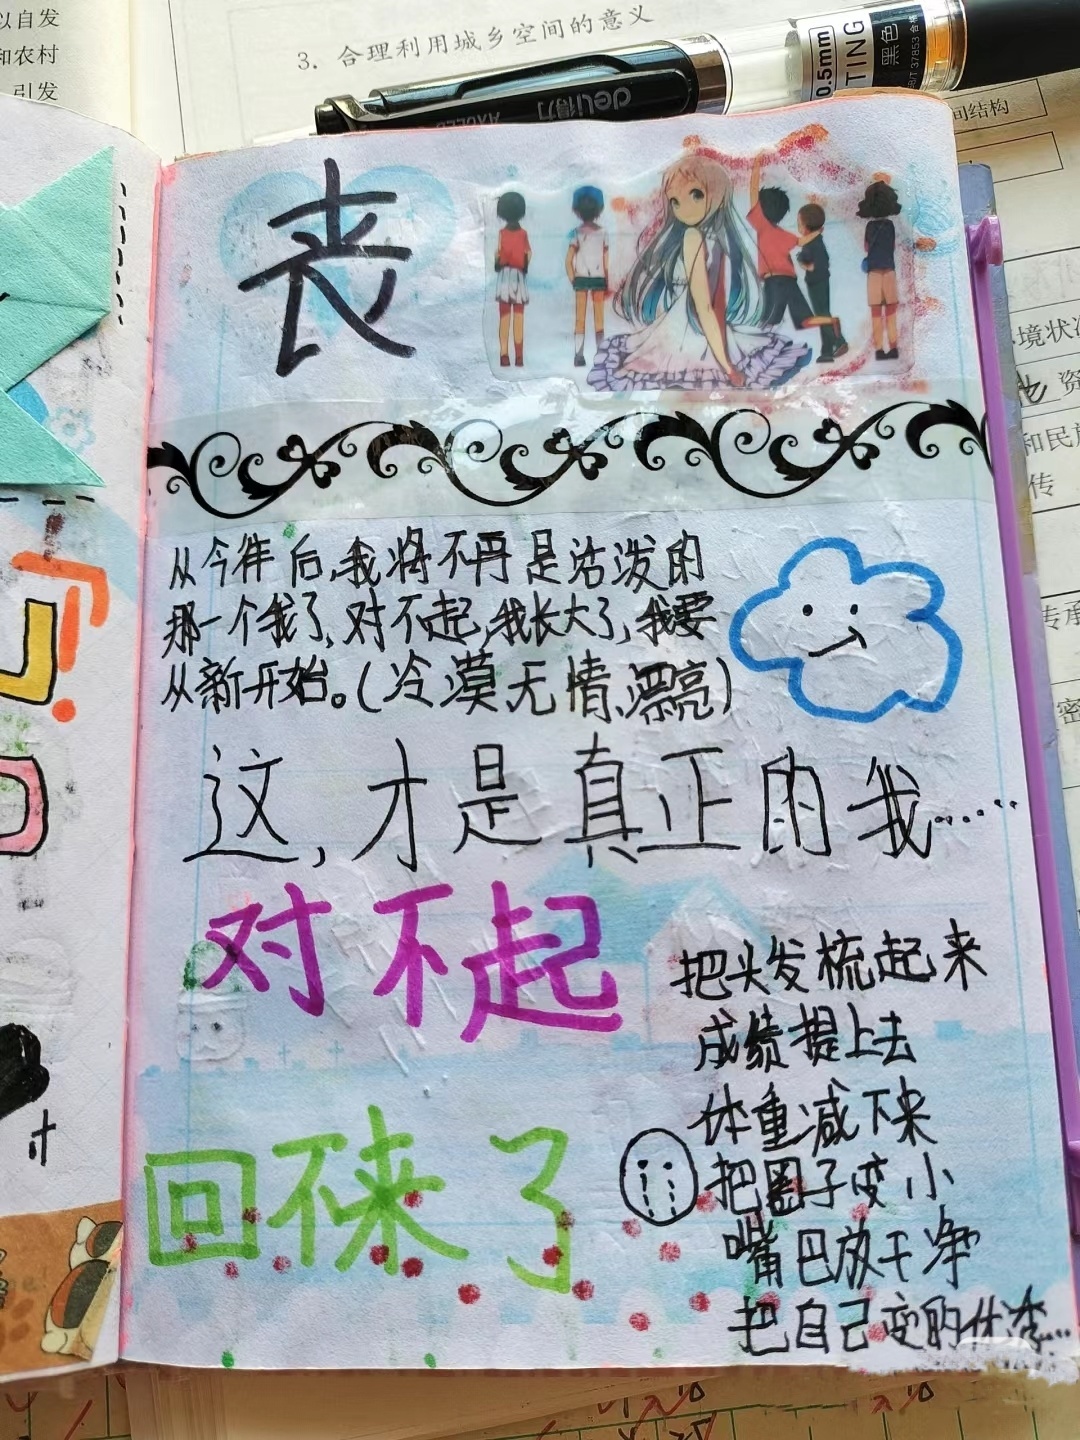 以自发
和农村
引发
3. 合理利用城乡空间的意义
deli得力
0.5mm
TING
黑色
37853
合格
间结构
境状
资
和民
传
传承
密
丧
从今往后,我将不再是活泼的
那一个我了,对不起,我长大了,我要
从新开始。(冷漠无情漂亮)
这,才是真正的我……
对不起
回不来了
把头发梳起来
成绩提上去
体重减下来
把圈子变小
嘴巴放干净
把自己变的优秀…